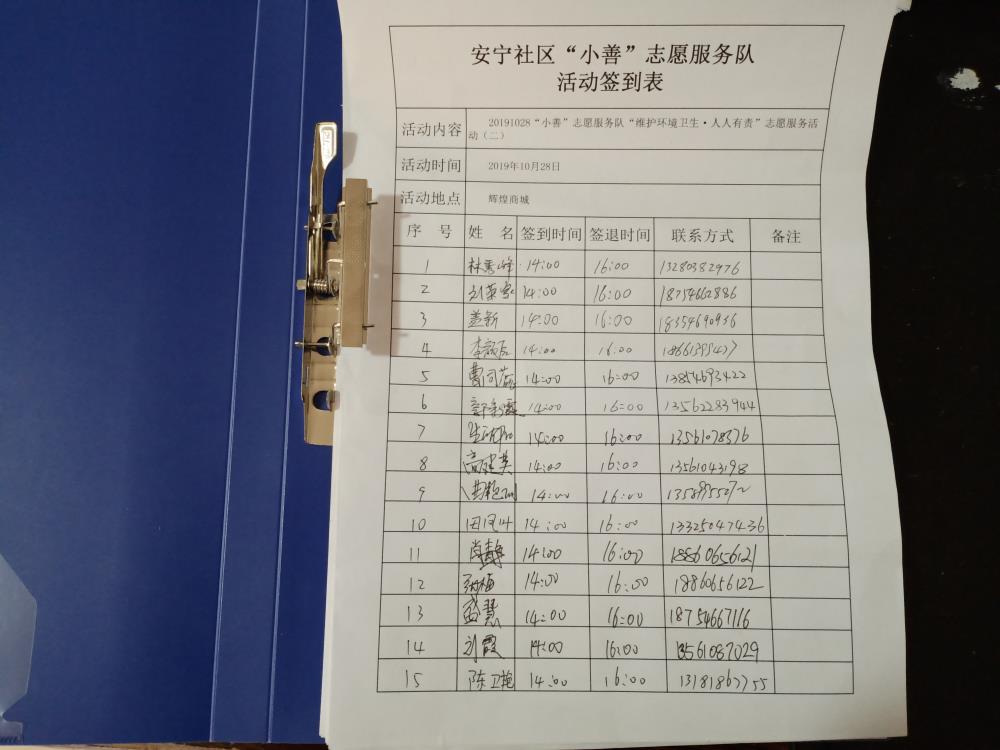 安宁社区“小善”志愿服务队
活动签到表
活动内容 20191028“小善”志愿服务队“维护环境卫生·人人有责”志愿服务活
动（二）
活动时间 2019年10月28日
活动地点 辉煌商城
序 号 姓 名 签到时间 签退时间 联系方式 备注
1 林秀峰 14:00 16:00 13280382976
2 14:00 16:00 18754662886
3 盖新 14:00 16:00 18354690936
4 14:00 16:00
5 14:00 16:00 13854693422
6 14:00 16:00 13562283944
7 14:00 16:00 13561078376
8 高建英 14:00 16:00 13561043198
9 14:00 16:00
10 田凤叶 14:00 16:00 13325047436
11 肖静 14:00 16:00 18860656121
12 14:00 16:00 18860656122
13 孟慧 14:00 16:00 18754667116
14 刘霞 14:00 16:00 13561087029
15 陈卫艳 14:00 16:00 13181867755